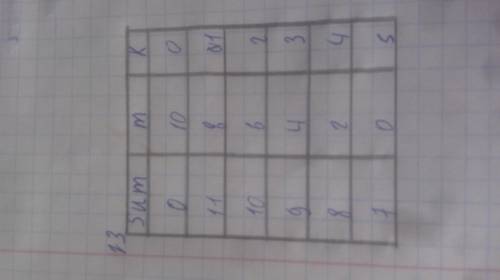 13
Sum m K
0 10 0
11 8 1
10 6 2
9 4 3
8 2 4
7 0 5